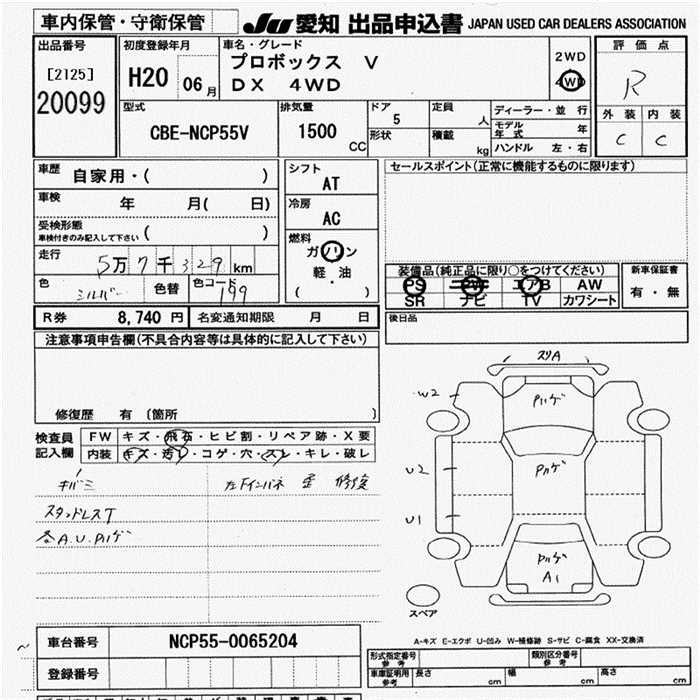 車内保管・守衛保管
JU 愛知 出品申込書 JAPAN USED CAR DEALERS ASSOCIATION
出品番号
[2125]
20099
初度登録年月
H20 06月
車名・グレード
プロボックス V
DX 4WD
2WD
4WD
評価点
R
外装 内装
C C
型式
CBE-NCP55V
排気量
1500 CC
ドア
5
形状
定員
人
積載
kg
ディーラー・並行
モデル年式 年
ハンドル 左・右
車歴
自家用・( )
車検
年 月( 日)
受検形態
車検付きのみ記入して下さい ( )
走行
5万7千329km
色
シルバー
色替
色コード
199
シフト
AT
冷房
AC
燃料
ガソリン
軽・油
( )
セールスポイント(正常に機能するものに限ります)
装備品(純正品に限り○をつけてください)
PS PW エアB AW
SR ナビ TV カワシート
新車保証書
有・無
後日品
R券 8,740円 名変通知期限 月 日
注意事項申告欄(不具合内容等は具体的に記入して下さい)
修復歴 有 〔箇所 〕
検査員
記入欄
FW キズ・飛石・ヒビ割・リペア跡・X要
内装 キズ・汚レ・コゲ・穴・スレ・キレ・破レ
左Fインパネ 歪 修復
各A.U.Pハゲ
スリA
W2
Pハゲ
U2
Pハゲ
U1
Pハゲ
A1
スペア
A-キズ E-エクボ U-凹み W-補修跡 S-サビ C-腐食 XX-交換済
車台番号 NCP55-0065204
登録番号
形式指定番号
参考
類別区分番号
参考
車庫証明用
参考
長さ cm 幅 cm 高さ cm